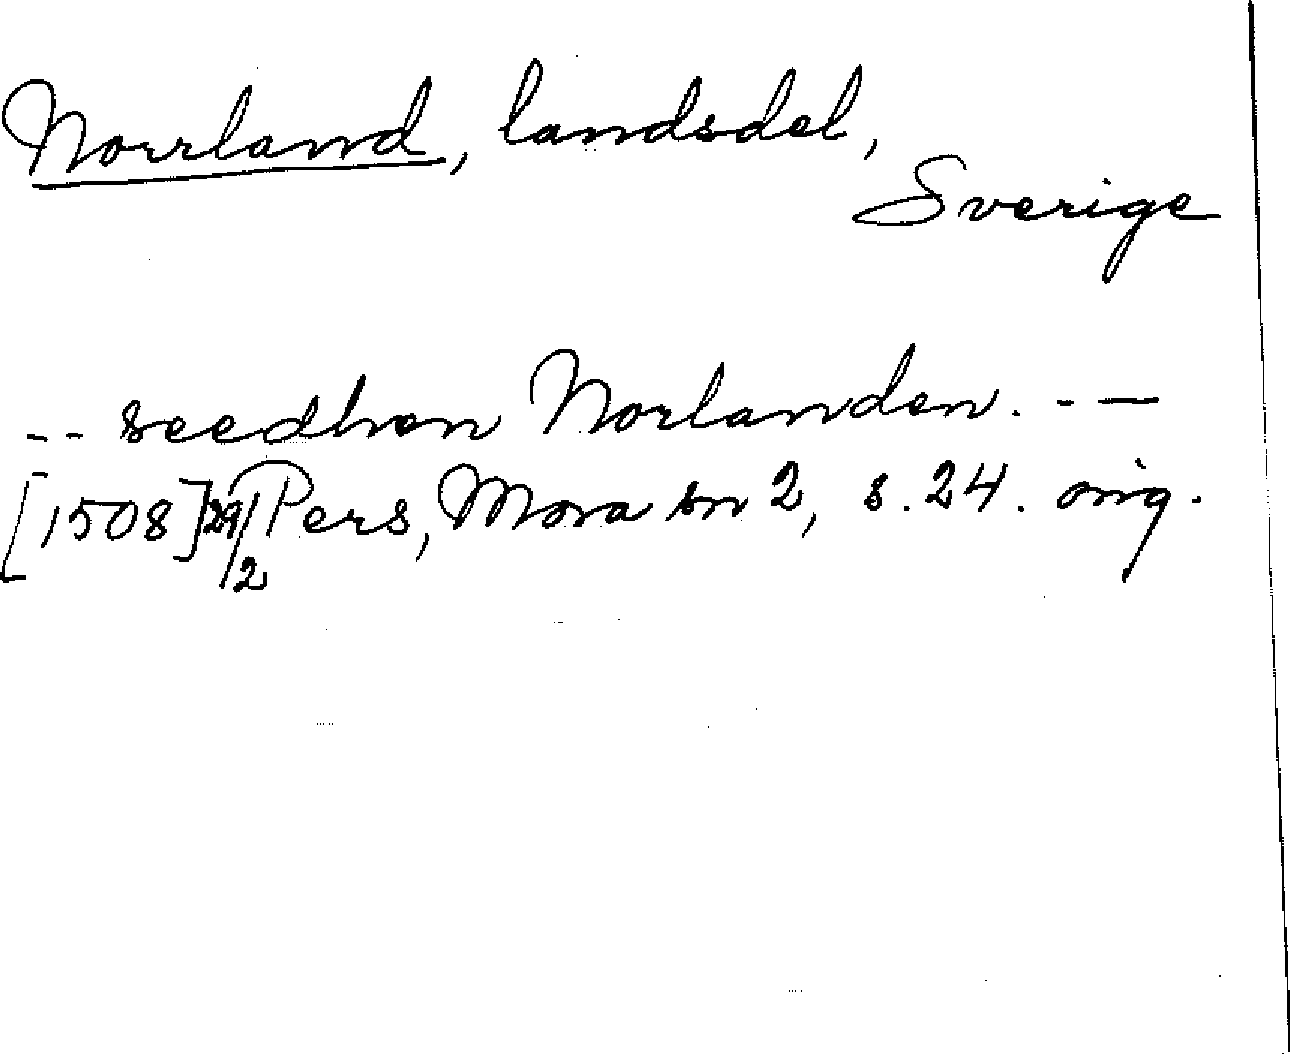 Norrland, landsdel,
Sverige
-- seedhen Norlanden. -—
[1508] 29/2 Pers, Mora sn 2, s. 24. orig.